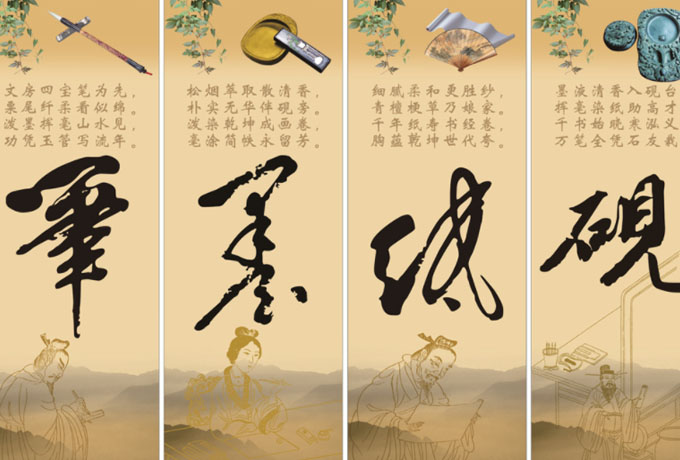 文房四宝笔为先，
粟尾纤柔看似绵。
泼墨挥毫山水见，
功凭玉管写流年。
筆
松烟萃取散清香，
朴实无华伴砚旁。
泼染乾坤成画卷，
毫涂简帙永留芳。
墨
细腻柔和更胜纱，
青檀梗草乃娘家。
千年纸寿书经卷，
胸蕴乾坤世代夸。
纸
墨液清香入砚台
挥毫染纸助高才
千书始晓寒泓义
万笔全凭石友裁
硯